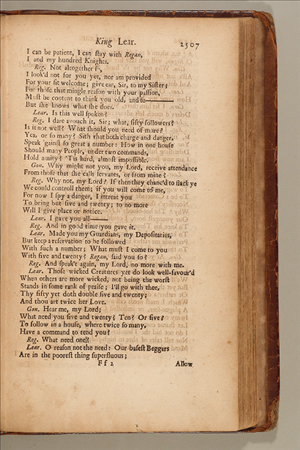 King Lear. 2507
I can be patient, I can stay with Regan,
I and my hundred Knights.
Reg. Not altogether so,
I look'd not for you yet, nor am provided
For your fit welcome; give ear, Sir, to my Sister;
For those that mingle reason with your passion,
Must be content to think you old, and so
But she knows what she does.
Lear. Is this well spoken?
Reg. I dare avouch it, Sir; what, fifty followers?
Is it not well? What should you need of more?
Yea, or so many? Sith that both charge and danger,
Speak 'gainst so great a number: How in one house
Should many People, under two commands,
Hold amity? 'Tis hard, almost impossible.
Gon. Why might not you, my Lord, receive attendance
From those that she calls servants, or from mine?
Reg. Why not, my Lord? If then they chanc'd to slack ye
We could controll them; if you will come to me,
For now I spy a danger, I intreat you
To bring but five and twenty; to no more
Will I give place or notice.
Lear. I gave you all
Reg. And in good time you gave it.
Lear. Made you my Guardians, my Depositaries,
But keep a reservation to be followed
With such a number: What must I come to you
With five and twenty? Regan, said you so?
Reg. And speak't again, my Lord, no more with me.
Lear. Those wicked Creatures yet do look well-favour'd
When others are more wicked, not being the worst
Stands in some rank of praise; I'll go with thee,
Thy fifty yet doth double five and twenty;
And thou art twice her Love.
Gon. Hear me, my Lord;
What need you five and twenty? Ten? Or five?
To follow in a house, where twice so many,
Have a command to tend you?
Reg. What need one?
Lear. O reason not the need: Our basest Beggers
Are in the poorest thing superfluous;
Ff2 Allow